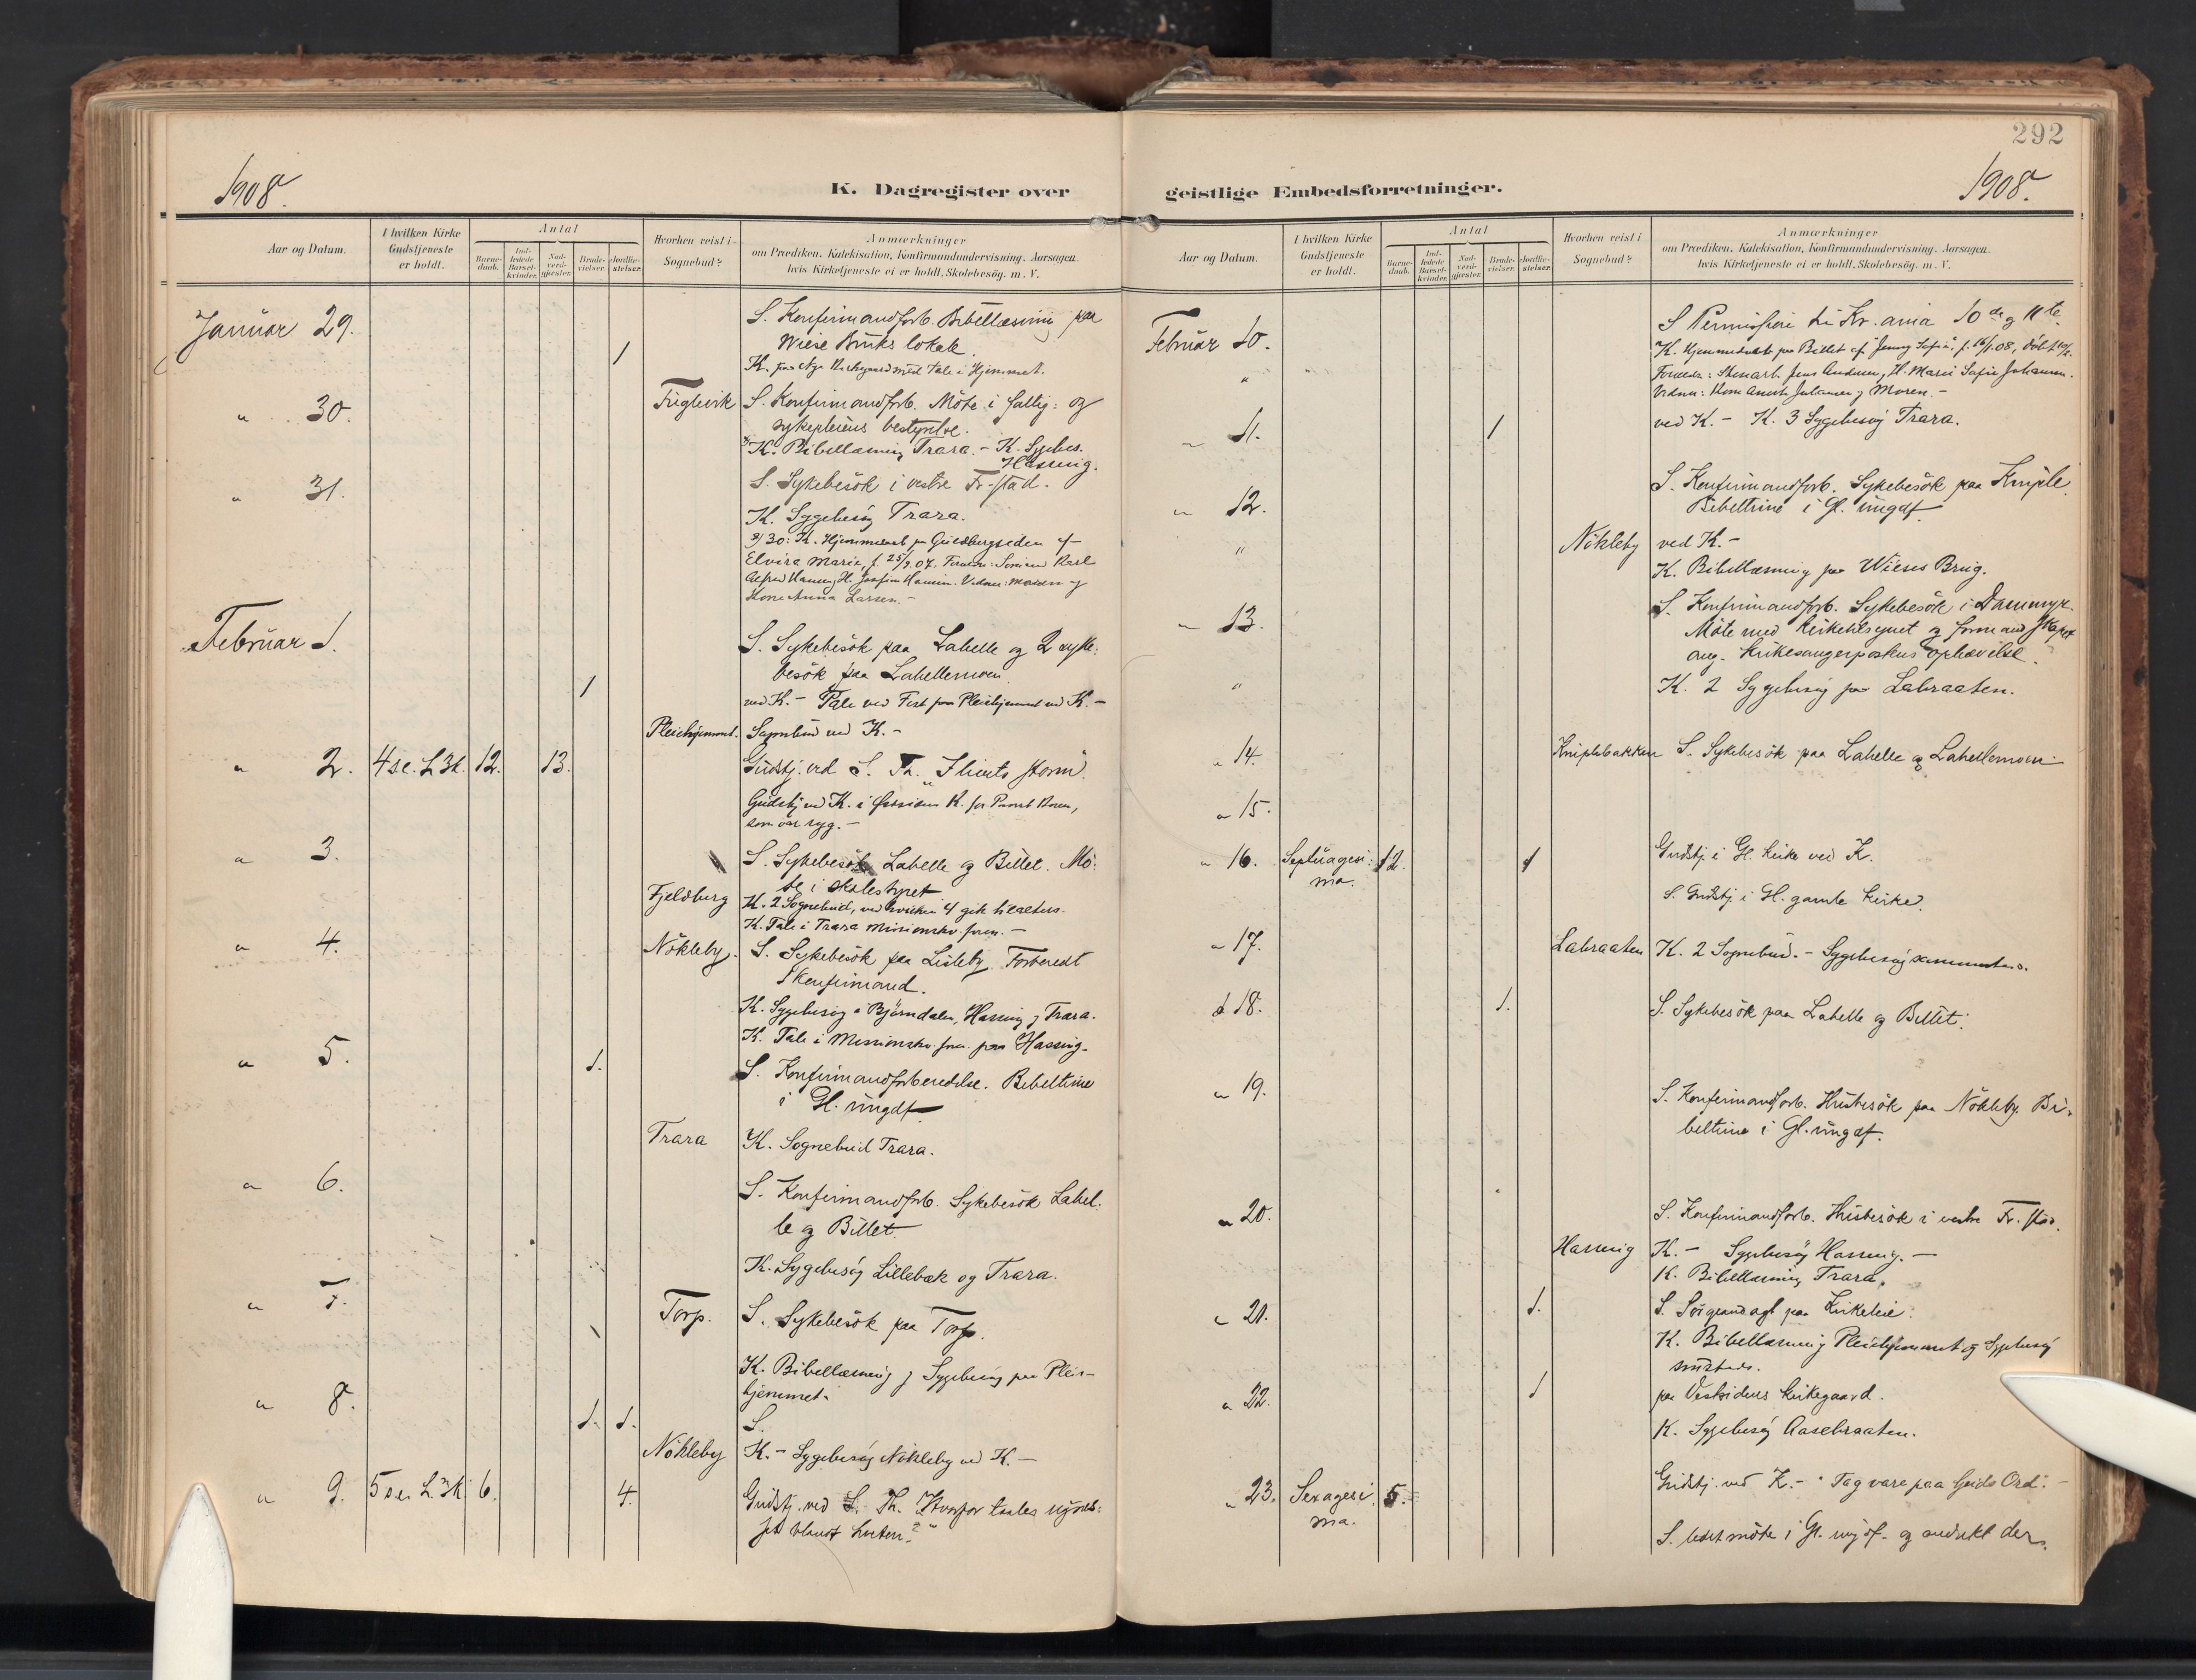 292
1908.
K. Dagregister over
Aar og Datum.
I hvilken Kirke
Gudstjeneste
er holdt.
Antal
Barne-
daab.
Ind-
ledede
Barsel-
kvinder.
Nad-
verd-
gjæster.
Brude-
vielser.
Jordfæ-
stelser.
Hvorhen reist i
Sognebud?
Anmærkninger
om Prædiken, Katekisation, Konfirmandundervisning, Aarsagen,
hvis Kirketjeneste ei er holdt, Skolebesög. m. V.
Januar 29.
1
S. Konfirmandforb. Bibellæsning paa
Wiese Bruks lokale.
K. paa Nye Kirkegaard med Tale i Hjemmet.
" 30.
Fuglevik
S. Konfirmandforb. Möte i fattig: og
sykepleiens bestyrelse.
K. Bibellæsning Trara. - K. Sygebes.
Hassing.
" 31.
S. Sykebesök i vestre Fr.stad.
K. Sygebesög Trara.
Elvira Marie, f. 25/9.07.
Kone Anna Larsen. -
Februar 1.
1
S. Sykebesök paa Lahelle og 2 syke:
besök paa Lahellemoen.
ved K. - Tale ved Fest paa Pleiehjemmet ved K. -
Pleiehjemmet.
Sognebud ved K. -
" 2.
4 se. h. 3 k.
12.
13.
Gudstj. ved S. Th. "I livets storm"
Gudstj ved K. i Østsidens K. for
som var syg. -
" 3.
S. Sykebesök Lahelle og Billet. Mö:
te i skolestyret
Fjeldberg
K. 2 Sognebud, ved hvilken 4 gik til alters.
K. Tale i Trara Missionskv. foren. -
" 4.
Nökleby.
S. Sykebesök paa Lisleby. Forberedt
1 konfirmand.
K. Sygebesög i Bjørndalen, Hassing og Trara.
K. Tale i Missionskv. foren. paa Hassing.
" 5.
1.
S. Konfirmandforberedelse. Bibeltime
i Gl. ungdf.
Trara
K. Sognebud Trara.
" 6.
S. Konfirmandforb. Sykebesök Lahel:
le og Billet.
K. Sygebesög Lillebæk og Trara.
" 7.
Torp.
S. Sykebesök paa Torp.
K. Bibellæsning og Sygebesög paa Pleie-
hjemmet.
" 8.
1.
1.
S.
Nökleby
K. - Sygebesög Nökleby ved K. -
" 9.
5 se. h. 3 k.
6.
4.
Gudstj. ved S. Th. "Hvorfor tales
blandt
1908.
geistlige Embedsforretninger.
Aar og Datum.
I hvilken Kirke
Gudstjeneste
er holdt.
Antal
Barne-
daab.
Ind-
ledede
Barsel-
kvinder.
Nad-
verd-
gjæster.
Brude-
vielser.
Jordfæ-
stelser.
Hvorhen reist i
Sognebud?
Anmærkninger
om Prædiken, Katekisation, Konfirmandundervisning, Aarsagen,
hvis Kirketjeneste ei er holdt, Skolebesög. m. V.
Februar 10.
S Permission til Kr.ania 10de og 11te.
"
K. Hjemmedaab paa Billet af Jenny Sofie, f. 16/1.08, döbt 10/2.
Forældre: Stenarb. Jens Andersen, H. Marie Sofie Johansen.
" 11.
1
ved K. - K. 3 Sygebesög Trara.
" 12.
S. Konfirmandforb. Sykebesök paa Kniple.
Bibeltime i Gl. ungdf.
"
Nökleby
ved K. -
K. Bibellæsning paa Wieses Brug.
" 13.
S. Konfirmandforb. Sykebesök i Dammyr.
Möte med kirketilsynet og formandskapet
ang. kirkesangerpostens ophævelse.
"
K. 2 Sygebesög paa Labraaten.
" 14.
Kniplebakken
S. Sykebesök paa Lahelle og Lahellemoen
" 15.
" 16.
Septuagesi:
ma.
12.
1
Gudstj. i Gl. kirke ved K.
S. Gudstj. i Gl. gamle kirke.
" 17.
Labraaten
K. 2 Sognebud. - Sygebesög sammesteds.
" 18.
1.
S. Sykebesök paa Lahelle og Billet.
" 19.
S. Konfirmandforb. Husbesök paa Nökleby. Bi:
beltime i Gl. ungdf.
" 20.
S. Konfirmandforb. Husbesök i vestre Fr.stad.
Hassing
K. - Sygebesög Hassing. -
K. Bibellæsning Trara.
" 21.
1.
S. Sörgeandagt paa Kirkeleie.
K. Bibellæsning Pleiehjemmet og Sygebesög
smsteds.
" 22.
1
paa Vestsidens kirkegaard.
K. Sygebesög Aasebraaten.
" 23.
Sexagesi
ma.
5.
Gudstj. ved K. - "Tag vare paa Guds Ord." -
S. ledet möte i Gl. ungdf. og andakt der.